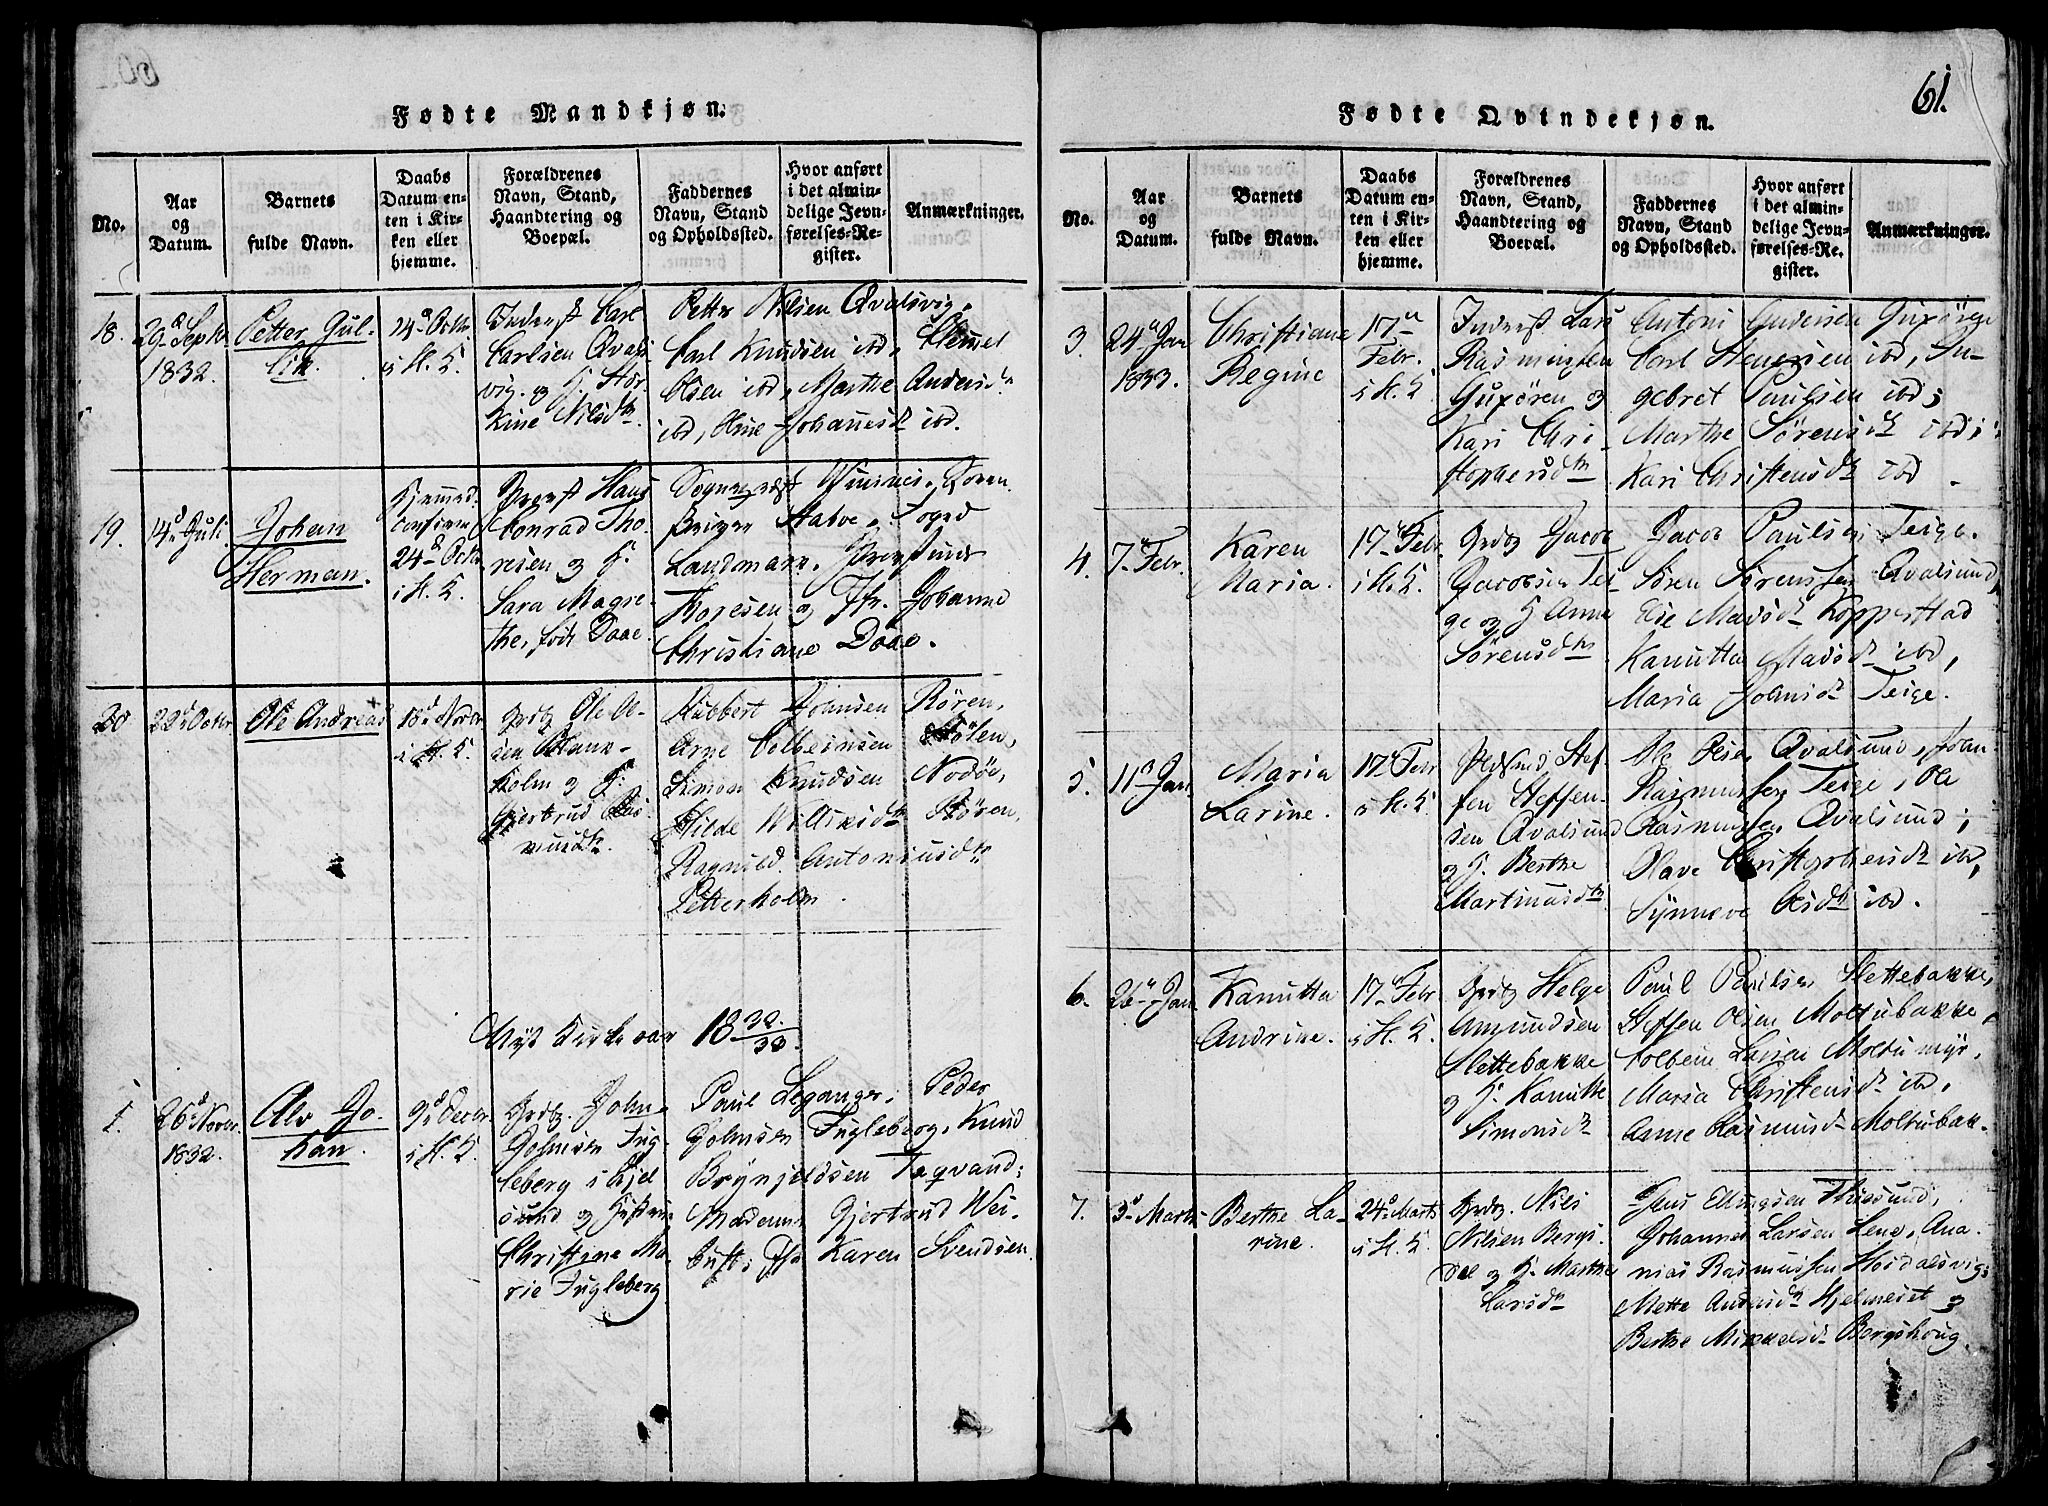 Fødte Mandkjøn.
No.
Aar og Datum.
Barnets fulde Navn.
Daabs Datum enten i Kirken eller hjemme.
Forældrenes Navn, Stand, Haandtering og Boepæl.
Faddernes Navn, Stand og Opholdssted.
Hvor anført i det almindelige Jevnførelses-Register.
Anmærkninger.
18.
29d Septr
1832.
Petter Gul-
lik.
14d Octbr
i H. K.
Inderst Carl
Carlsen Qvals
vig. og H. Stor
Kine Nilsdtr
Petter Nilsen Qvalsvig,
Carl Knudsen ibd, Klemmet
Olsen ibd, Marthe Andersdr
ibd, Oline Johannesdr ibd.
19.
14d Juli
Johan
Herman.
Hjemmed.
confirm
24d Octbr
i H. K.
Hans
Conrad Tho-
resen og H.
Sara Magre-
the, født Daae.
Landmark,
Thoresen og Jfr. Johanne
Christiane Daae.
20
22d Octbr
Ole Andreas
18d Novbr
i H. K.
Grdbr Ole Ol-
sen
holm og H.
Gjertrud Ras-
musdtr.
Rubbert Johnsen Røren,
Arne Colbeinsen
Simon Knudsen Nodøe,
Hilde Røren,
Ragnild Antoniusdtr
Petterholm.
Nyt Kirkeaar 18 32/33.
1.
26d Novbr.
1832.
Als Jo-
han.
9d Decbr
i H. K.
Grdbr. John
Johnsen Fug-
leberg i Kjel
sund og Hustrue
Christine Ma-
rie Fugleberg
Paul Leganger, Peder
Johnsen Fugleberg, Knud
Brynjeldsen Taqvand;
Madamme Gjertrud Wei-
bust; Jfr Karen Svendsen
61.
Fødte Qvindekjøn.
No.
Aar og Datum.
Barnets fulde Navn.
Daabs Datum enten i Kirken eller hjemme.
Forældrenes Navn, Stand, Haandtering og Boepæl.
Faddernes Navn, Stand og Opholdssted.
Hvor anført i det almindelige Jevnførelses-Register.
Anmærkninger.
3.
24d Jan
1833.
Christiane
Regine
17d
Febr.
i H. K.
Inderst Lars
Rasmussen
Gurøren og
Kari Chri-
stophersdtr
Antoni Gudersen Gurøren
Carl Stenersen ibd, In-
gebret Paulsen ibd;
Marthe Sørensdr ibd;
Kari Christensdr ibd.
4.
7d Febr.
Karen
Maria.
17d Febr.
i H. K.
Grdbr Jacob
Jacobsen Tei-
ge og H Anne
Sørensdtr
Jacob Paulsen Teige.
Søren Sørensen Qvalsund,
Else Madsdr Kopperstad
Kanutta Madsdr ibd,
Maria Johnsdr Teige.
5.
11d Jan.
Maria
Larine.
17d Febr
i H. K.
Stef-
fen Steffen-
sen Qvalsund
og H. Berthe
Martinusdtr
Ole Olsen Qvalsund, Joan
Rasmussen Teige, Ole
Rasmussen Qvalsund;
Olave Christophersdr ibd,
Synneve Olsdr ibd.
6.
26d Jan.
Kanutta
Andrine.
17d Febr
i H. K.
Grdbr Helge
Amundsen
Slettebakke
og H. Kanutte
Simonsdr
Paul Paulsen Slettebakke,
Steffen Olsen Moltubakke,
Colbein Larsen Moltumyr,
Maria Christensdr ibd,
Anne Rasmusdr Moltubak-
7.
3d Marts
Berthe La-
rine.
24d Marts
i H. K.
Grdbr. Nils
Nilsen Bergs-
dal og H. Marthe
Larsdr
Jens Ellingsen Thiesund,
Johannes Larsen Lene, Ana-
nias Rasmussen Hosdalsvig;
Mette Andersdr Hjelmeset og
Berthe Mikkelsdr Bergshoug